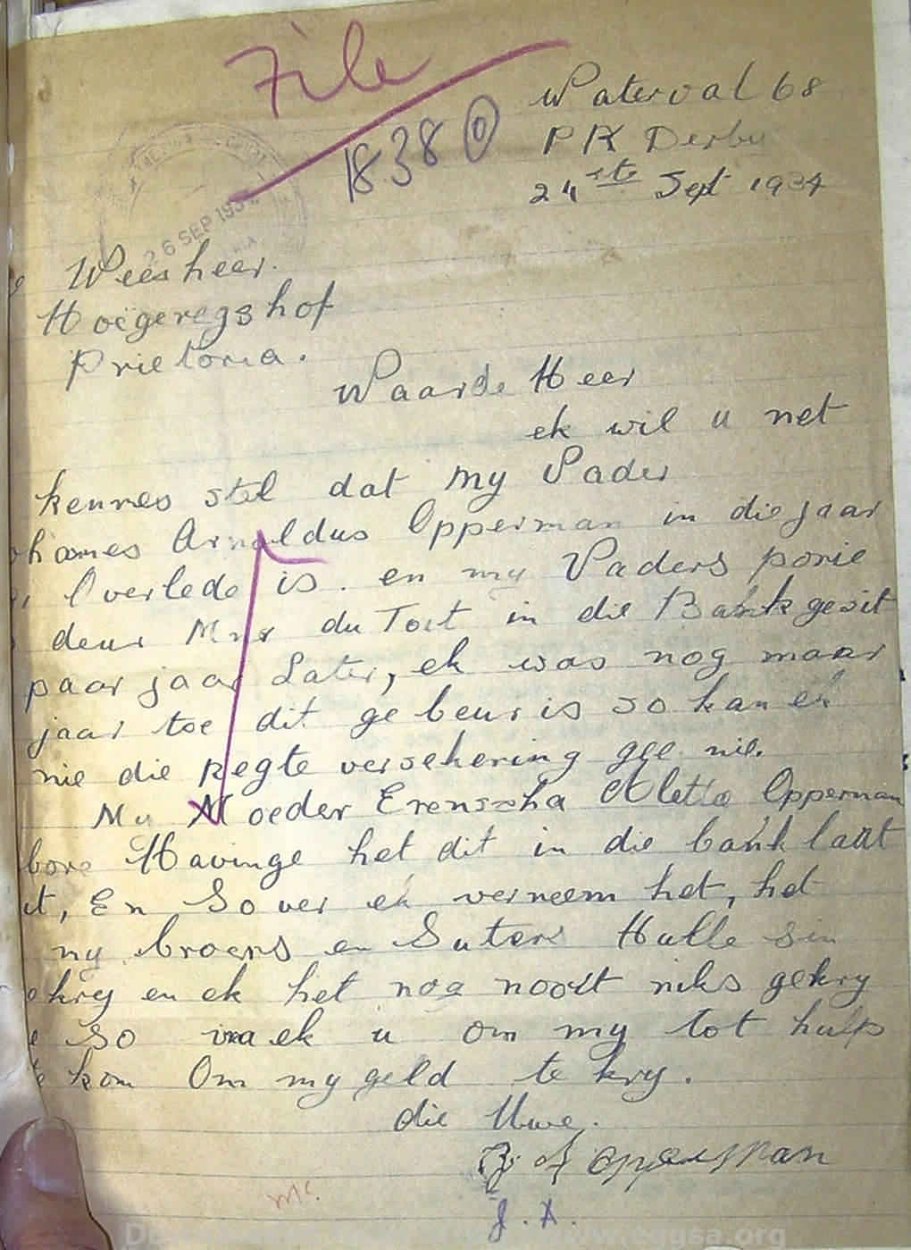 File
1838
Waterval 68
P K Derby
24ste Sept 1934
26 SEP 193
Weesheer.
Hoegeregshof
Prietoria.
Waarde Heer
ek wil u net
kennes stel dat my Vader
Arnaldus Opperman in die jaar
Overlede is. en my Vaders porsie
deur Mnr du Toit in die Bank gesit
paar jaar Later, ek was nog maar
jaar toe dit gebeur is so kan ek
nie die Regte versekering gee nie.
My Moeder Aletta Opperman
Havinge het dit in die bank laat
it, En So ver ek verneem het, het
my broers en Susters Hulle sin
kry en ek het nog nooit niks gekry
so vra ek u om my tot hulp
kom Om my geld te kry.
die Uwe.
Opperman
J. A.
www.eggsa.org